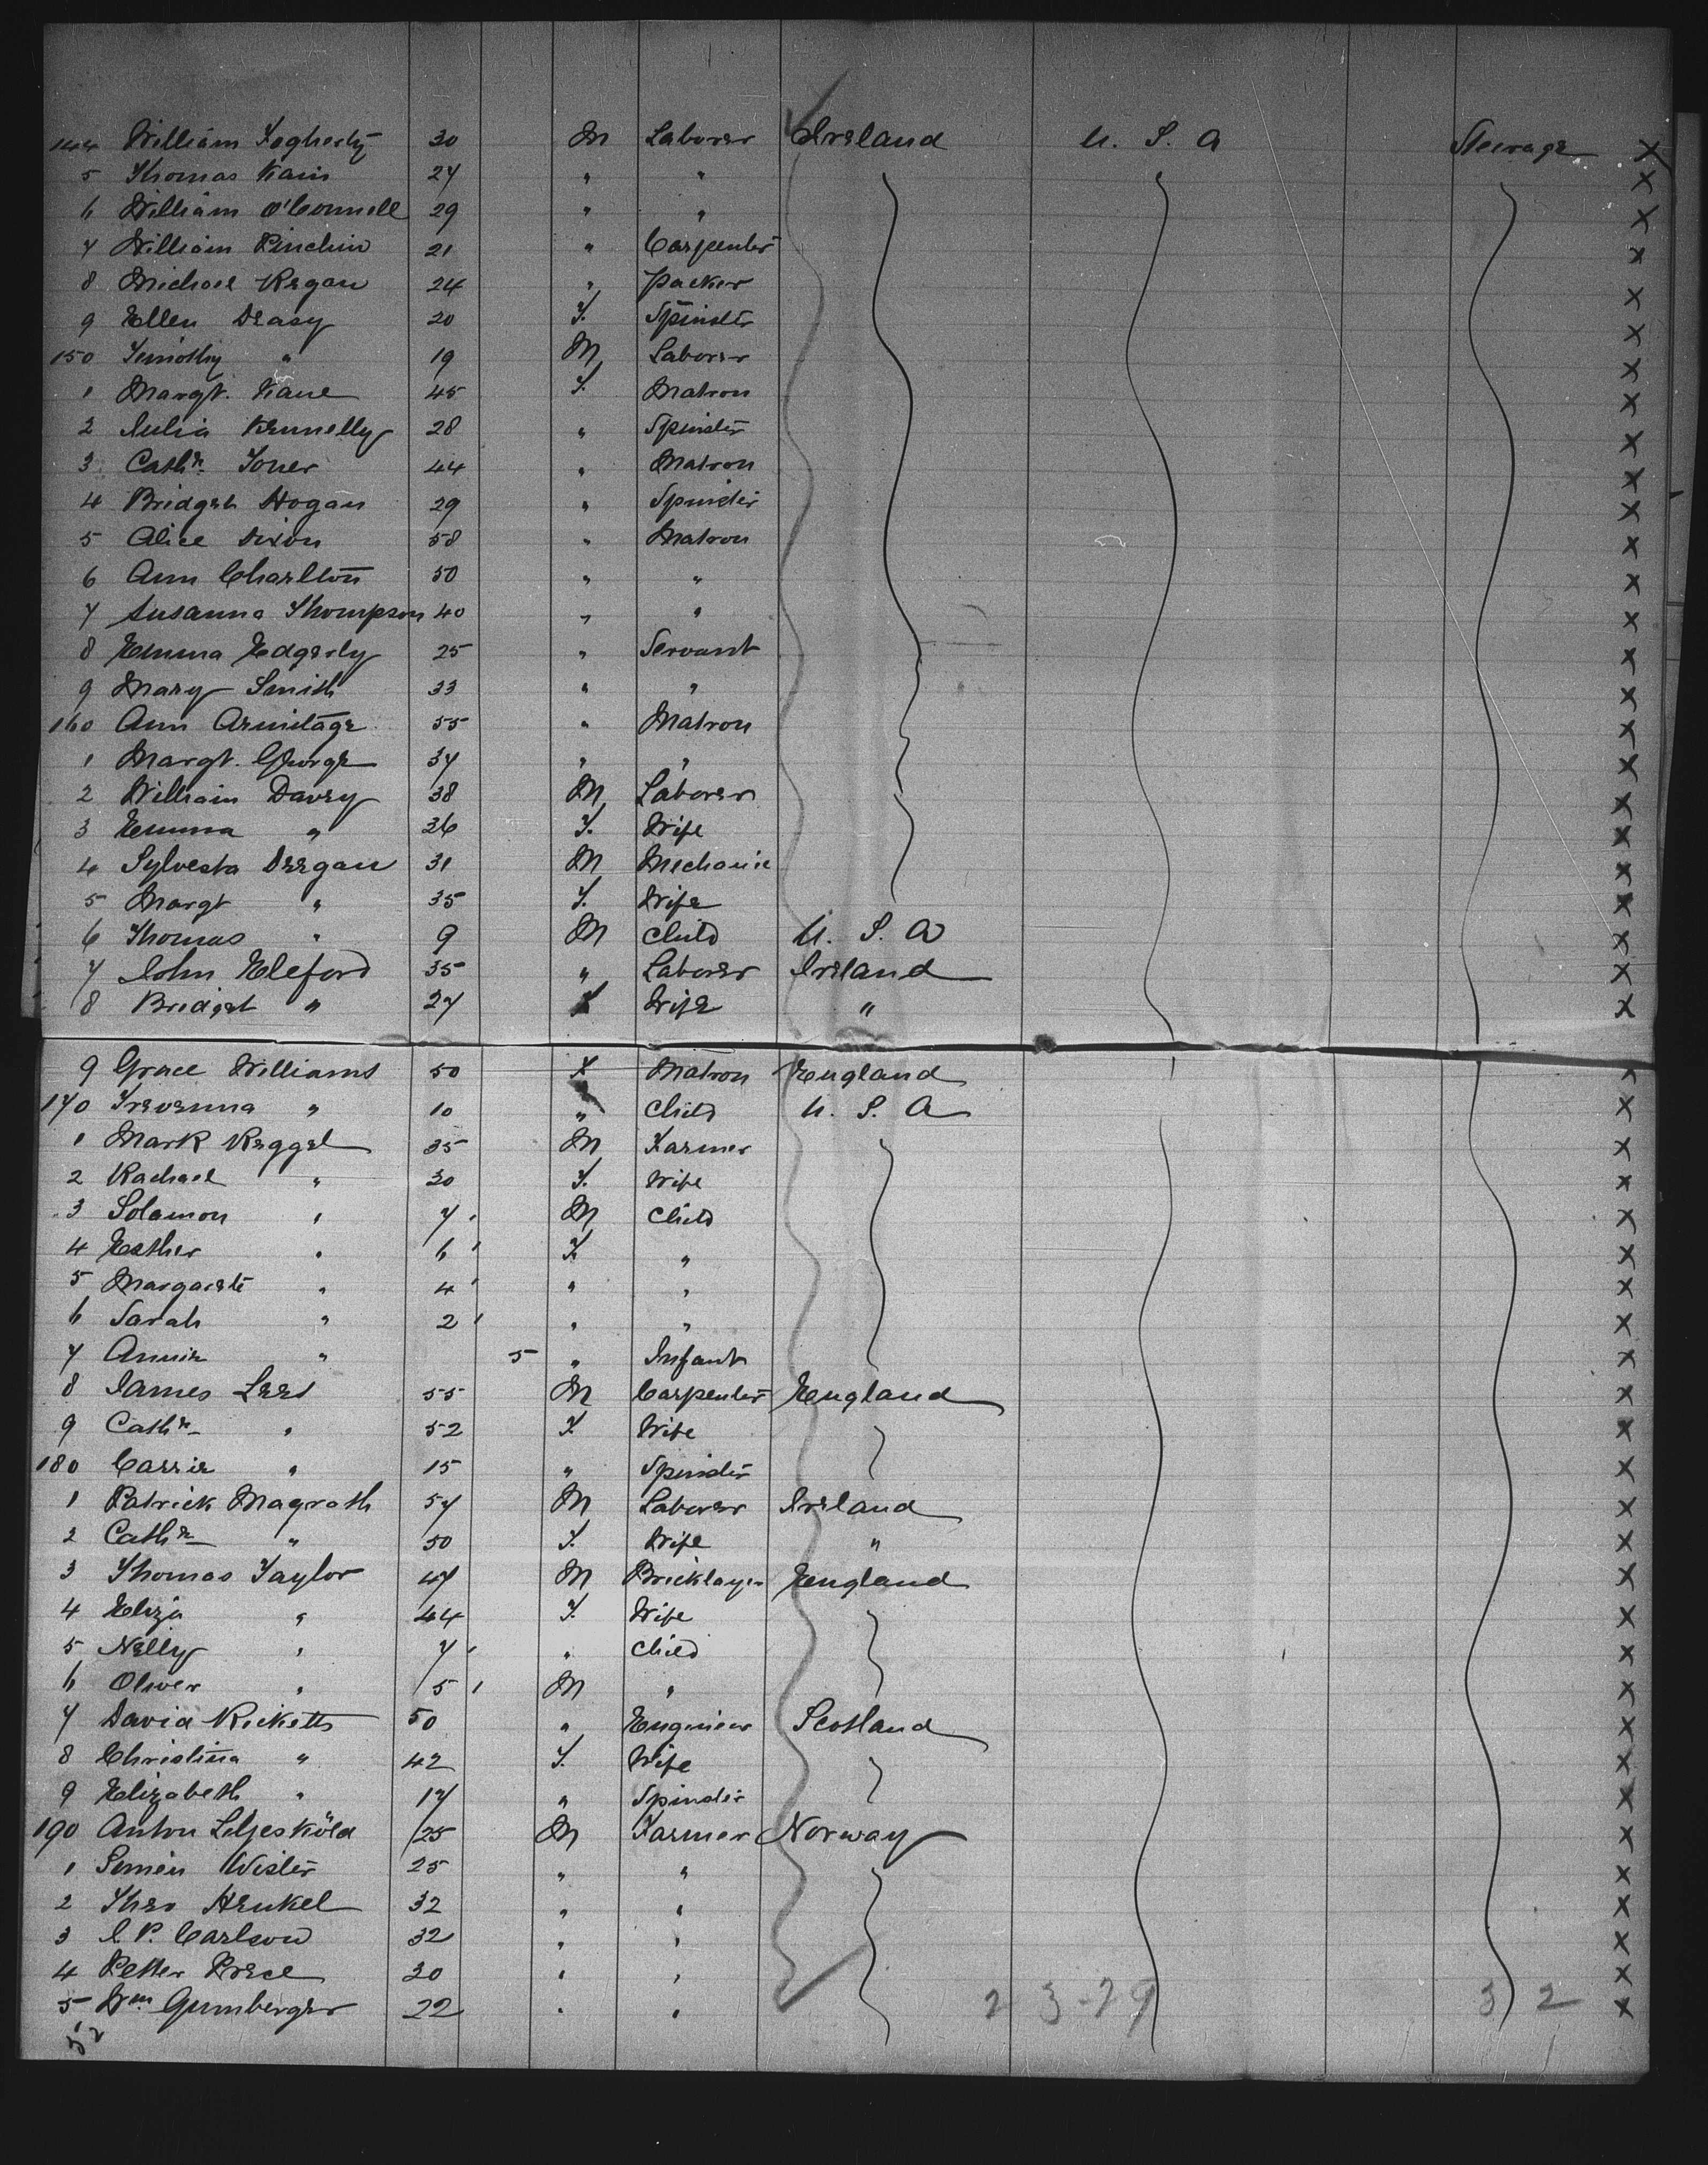 144 William Fogherty 30 M Laborer Ireland U. S. A Steerage X
5 Thomas Kain 27 " " X
6 William O'Connell 29 " " X
7 William Pinchin 21 " Carpenter X
8 Michael Regan 24 " Packer X
9 Ellen Deasy 20 F. Spinster X
150 Timothy " 19 M Laborer X
1 Margt. Kane 45 F. Matron X
2 Julia Kennelly 28 " Spinster X
3 Cathe. 44 " Matron X
4 Bridget Hogan 29 " Spinster X
5 Alice Dixon 58 " Matron X
6 Ann Charlton 50 " " X
7 Susanna Thompson 40 " " X
8 Emma Edgerly 25 " Servant X
9 Mary Smith 33 " " X
160 Ann Armitage 55 " Matron X
1 Margt. George 37 " " X
2 William Davey 38 M Laborer X
3 Emma " 26 F. Wife X
4 Sylvesta Deegan 31 M Mechanic X
5 Margt " 35 F. Wife X
6 Thomas " 9 M Child U. S. A X
7 John Eleford 35 " Laborer Ireland X
8 Bridget " 27 F Wife " X
9 Grace Williams 50 F Matron England X
170 Trevenna " 10 " Child U. S. A X
1 Mark Reggel 35 M Farmer X
2 Rachael " 30 F. Wife X
3 Solomon " 7 M Child X
4 Esther " 6 F. " X
5 Margarete " 4 " " X
6 Sarah " 2 " " X
7 Annie " 5 " Infant X
8 James Lees 55 M Carpenter England X
9 Cathe " 52 F. Wife X
180 Carrie " 15 " Spinster X
1 Patrick Magrath 57 M Laborer Ireland X
2 Cathe " 50 F. Wife " X
3 Thomas Taylor 47 M Bricklayer England X
4 Eliza " 44 F. Wife X
5 Nelly " 7 " Child X
6 Oliver " 5 M " X
7 David Ricketts 50 " Engineer Scotland X
8 Christina " 42 F. Wife X
9 Elizabeth " 17 " Spinster X
190 Anton Liljesköld 25 M Farmer Norway X
1 Simén Wister 25 " " X
2 Theo Henkel 32 " " X
3 J. P. Carlson 32 " " X
4 Petter 30 " " X
5 Wm Gumberger 22 " " X
2 3-29 3 2
52